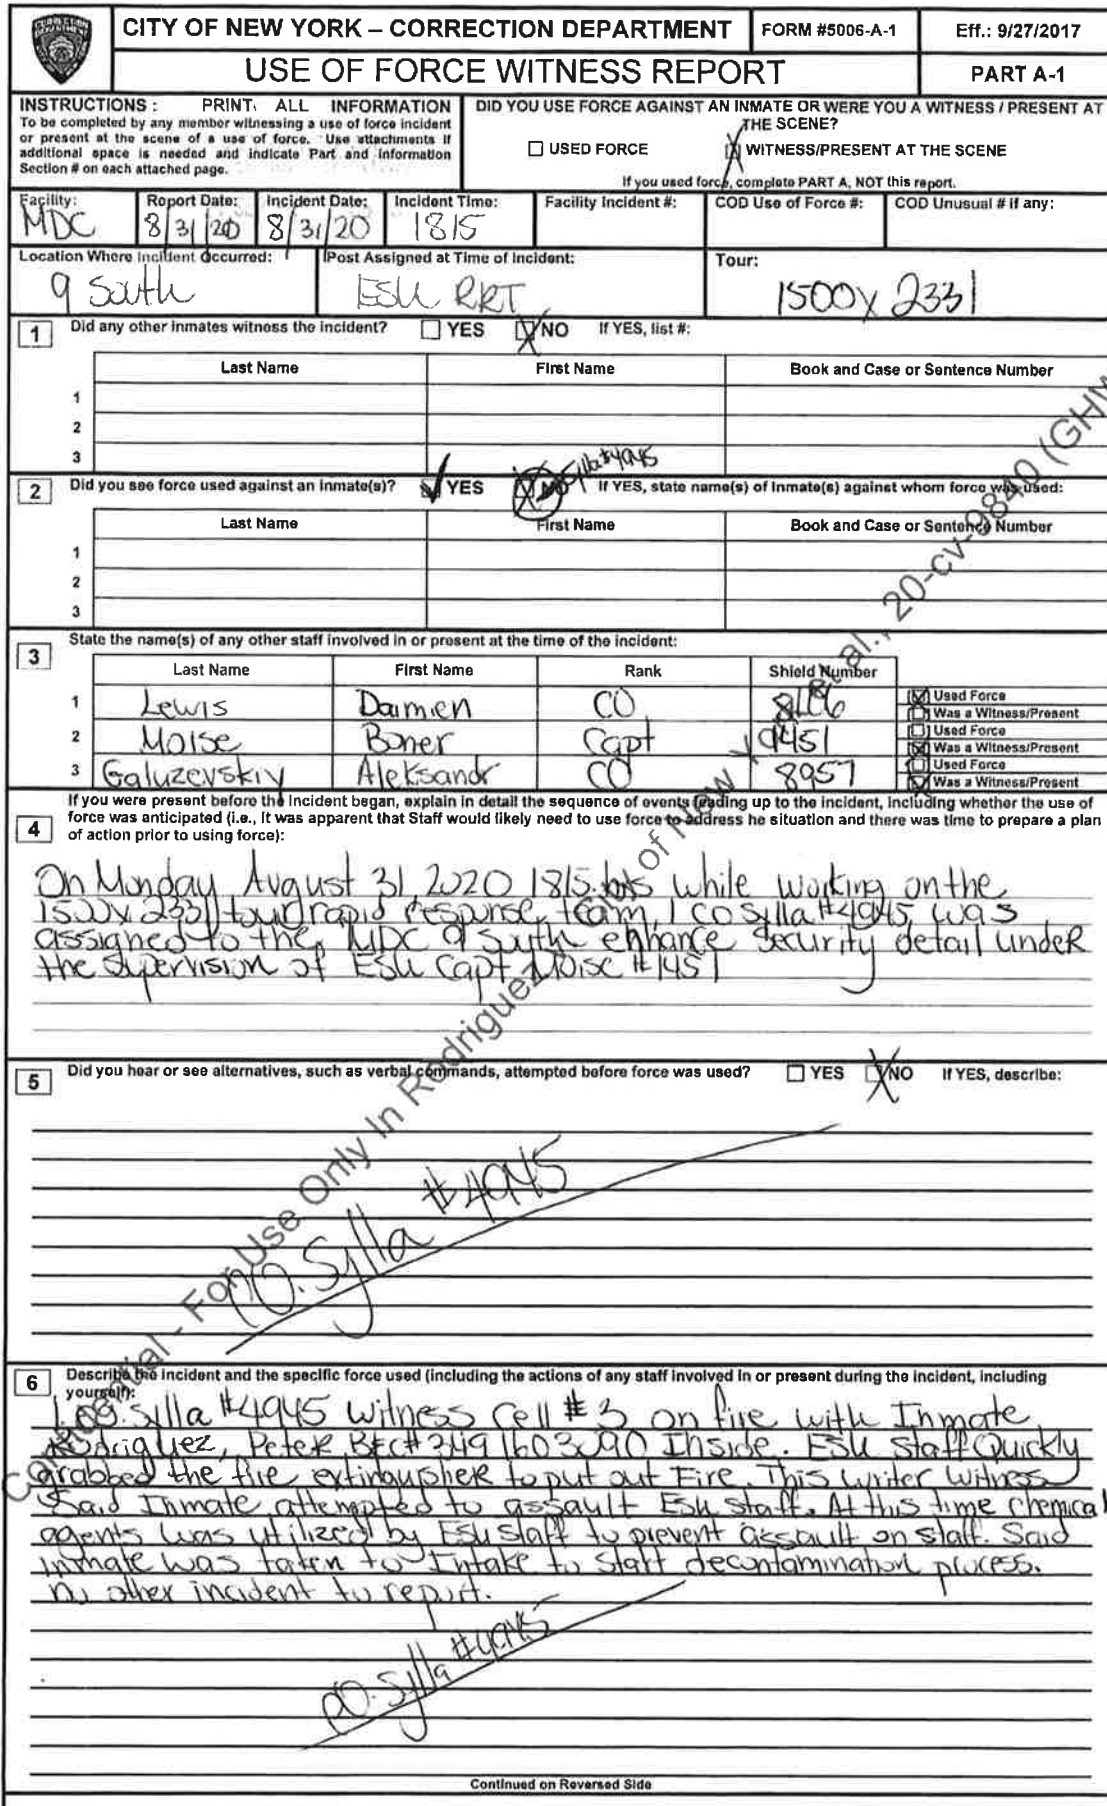 CITY OF NEW YORK – CORRECTION DEPARTMENT
FORM #5006-A-1
Eff.: 9/27/2017
USE OF FORCE WITNESS REPORT
PART A-1
INSTRUCTIONS : PRINT ALL INFORMATION
To be completed by any member witnessing a use of force incident
or present at the scene of a use of force. Use attachments if
additional space is needed and indicate Part and Information
Section # on each attached page.
DID YOU USE FORCE AGAINST AN INMATE OR WERE YOU A WITNESS / PRESENT AT
THE SCENE?
USED FORCE
WITNESS/PRESENT AT THE SCENE
If you used force, complete PART A, NOT this report.
Facility: Report Date: Incident Date: Incident Time: Facility Incident #: COD Use of Force #: COD Unusual # if any:
MDC 8/31/20 8/31/20 1815
Location Where Incident Occurred: Post Assigned at Time of Incident: Tour:
9 South ESU RRT 1500x2331
1 Did any other inmates witness the incident? YES NO If YES, list #:
Last Name First Name Book and Case or Sentence Number
1
2
3
Sylla #4945
2 Did you see force used against an inmate(s)? YES NO If YES, state name(s) of Inmate(s) against whom force was used:
Last Name First Name Book and Case or Sentence Number
1
2
3
3 State the name(s) of any other staff involved in or present at the time of the incident:
Last Name First Name Rank Shield Number
1 Lewis Damien CO Used Force
Was a Witness/Present
2 Moise Boner Capt 1451 Used Force
Was a Witness/Present
3 Galuzevskiy Aleksandr CO 8957 Used Force
Was a Witness/Present
4 If you were present before the Incident began, explain in detail the sequence of events leading up to the incident, including whether the use of
force was anticipated (i.e., it was apparent that Staff would likely need to use force to address he situation and there was time to prepare a plan
of action prior to using force):
On Monday August 31 2020 1815 hrs while working on the
1500x2331 tour rapid response team, I CO Sylla #4945 was
assigned to the MDC 9 South enhance Security detail under
the supervision of ESU Capt Moise #1451
5 Did you hear or see alternatives, such as verbal commands, attempted before force was used? YES NO If YES, describe:
CO. Sylla #4945
6 Describe the incident and the specific force used (including the actions of any staff involved in or present during the incident, including
yourself):
I, CO. Sylla #4945 witness Cell #3 on fire with Inmate
Rodriguez, Peter B&C# 3491603090 Inside. ESU Staff Quickly
grabbed the fire extinguisher to put out Fire. This writer witness
Said Inmate attempted to assault ESU staff. At this time chemical
agents was utilized by ESU staff to prevent assault on staff. Said
inmate was taken to Intake to start decontamination process.
no other incident to report.
CO. Sylla #4945
Continued on Reversed Side
Confidential - For Use Only In Rodriguez v. City of New York et al., 20-cv-9840 (GHW